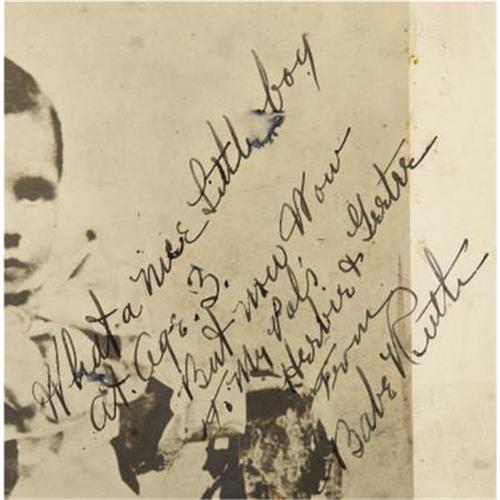 What a nice Little boy
at. Age. 3.
But now Wow
to My Pals.
Herbie & Gertre
From
Babe Ruth